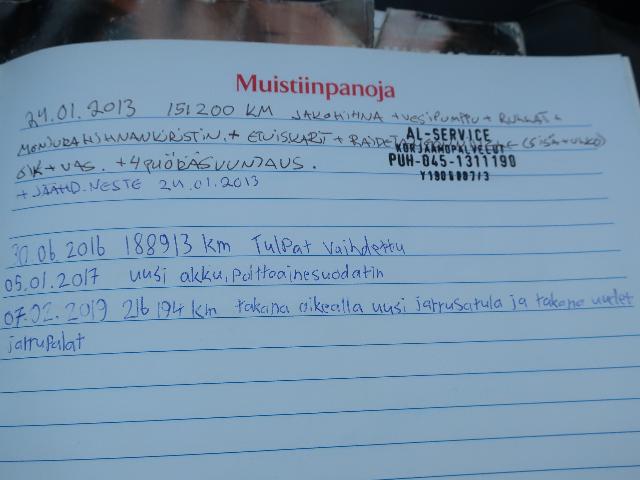 Muistiinpanoja
24.01.2013 151200 KM JAKOHIHNA + VESIPUMPPU + RULLAT +
MONIURAHIHNANKIRISTIN + ETUISKARIT + RAIDET (SISÄ + ULKO)
OIK + VAS. + 4 PYÖRÄSUUNTAUS.
+ JÄÄHD. NESTE 24.01.2013
AL-SERVICE
KORJAAMOPALVELUT
PUH-045-1311190
Y1906007/3
30.06.2016 188913 km Tulpat vaihdettu
05.01.2017 uusi akku, polttoainesuodatin
07.02.2019 216194 km takana oikealla uusi jarrusatula ja takana uudet
jarrupalat